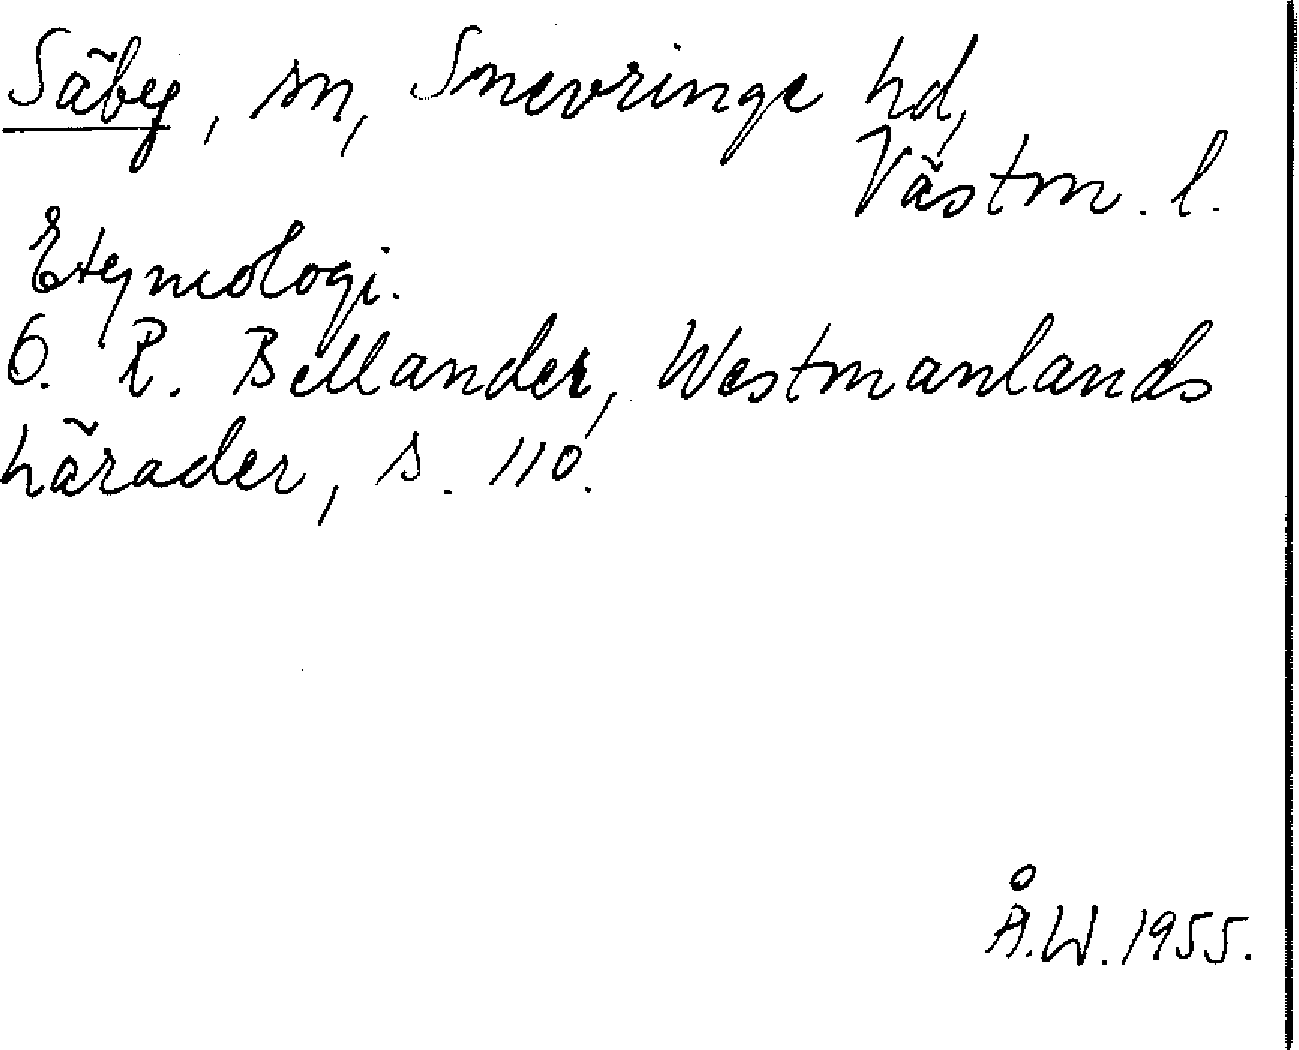 Säby, sn, Snevringe hd,
Västm. l.
Etymologi.
O. R. Bellander, Westmanlands
härader, s. 110.
Å.W. 1955.